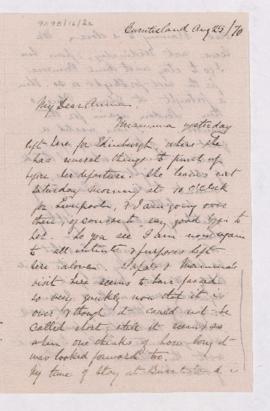 Burntisland Aug 25/70
My Dear Anna
Mamma yesterday
left here for Edinburgh, where she
has several things to put
before her departure: she leaves next
Saturday morning at 10 o'clock
for Liverpool, & I am going over
then of course to say good bye to
her. So you see I am now again
to all intents & purposes left
here alone. Papa's & Mamma's
visit here seems to have passed
so very quickly now that it is
over, & though it could not be
called short, still it seems so
when one thinks of how long it
was looked forward to.
My time of stay at